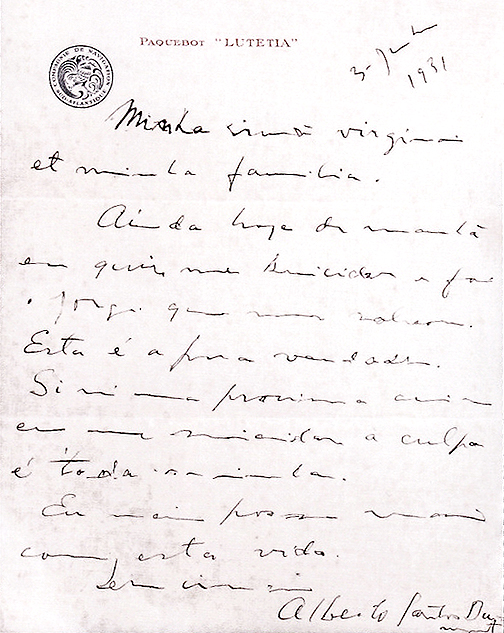 PAQUEBOT "LUTETIA"
COMPAGNIE DE NAVIGATION
SUD-ATLANTIQUE
1931
Minha irmã virginia
et minha familia.
Ainda hoje de manhã
eu quiz me suicidar e foi
o Jorge que me salvou.
Esta é a pura verdade.
Si
eu me suicidar a culpa
é toda minha.
Eu não posso mais
com esta vida.
Seu irmão
Alberto Santos Du
mont